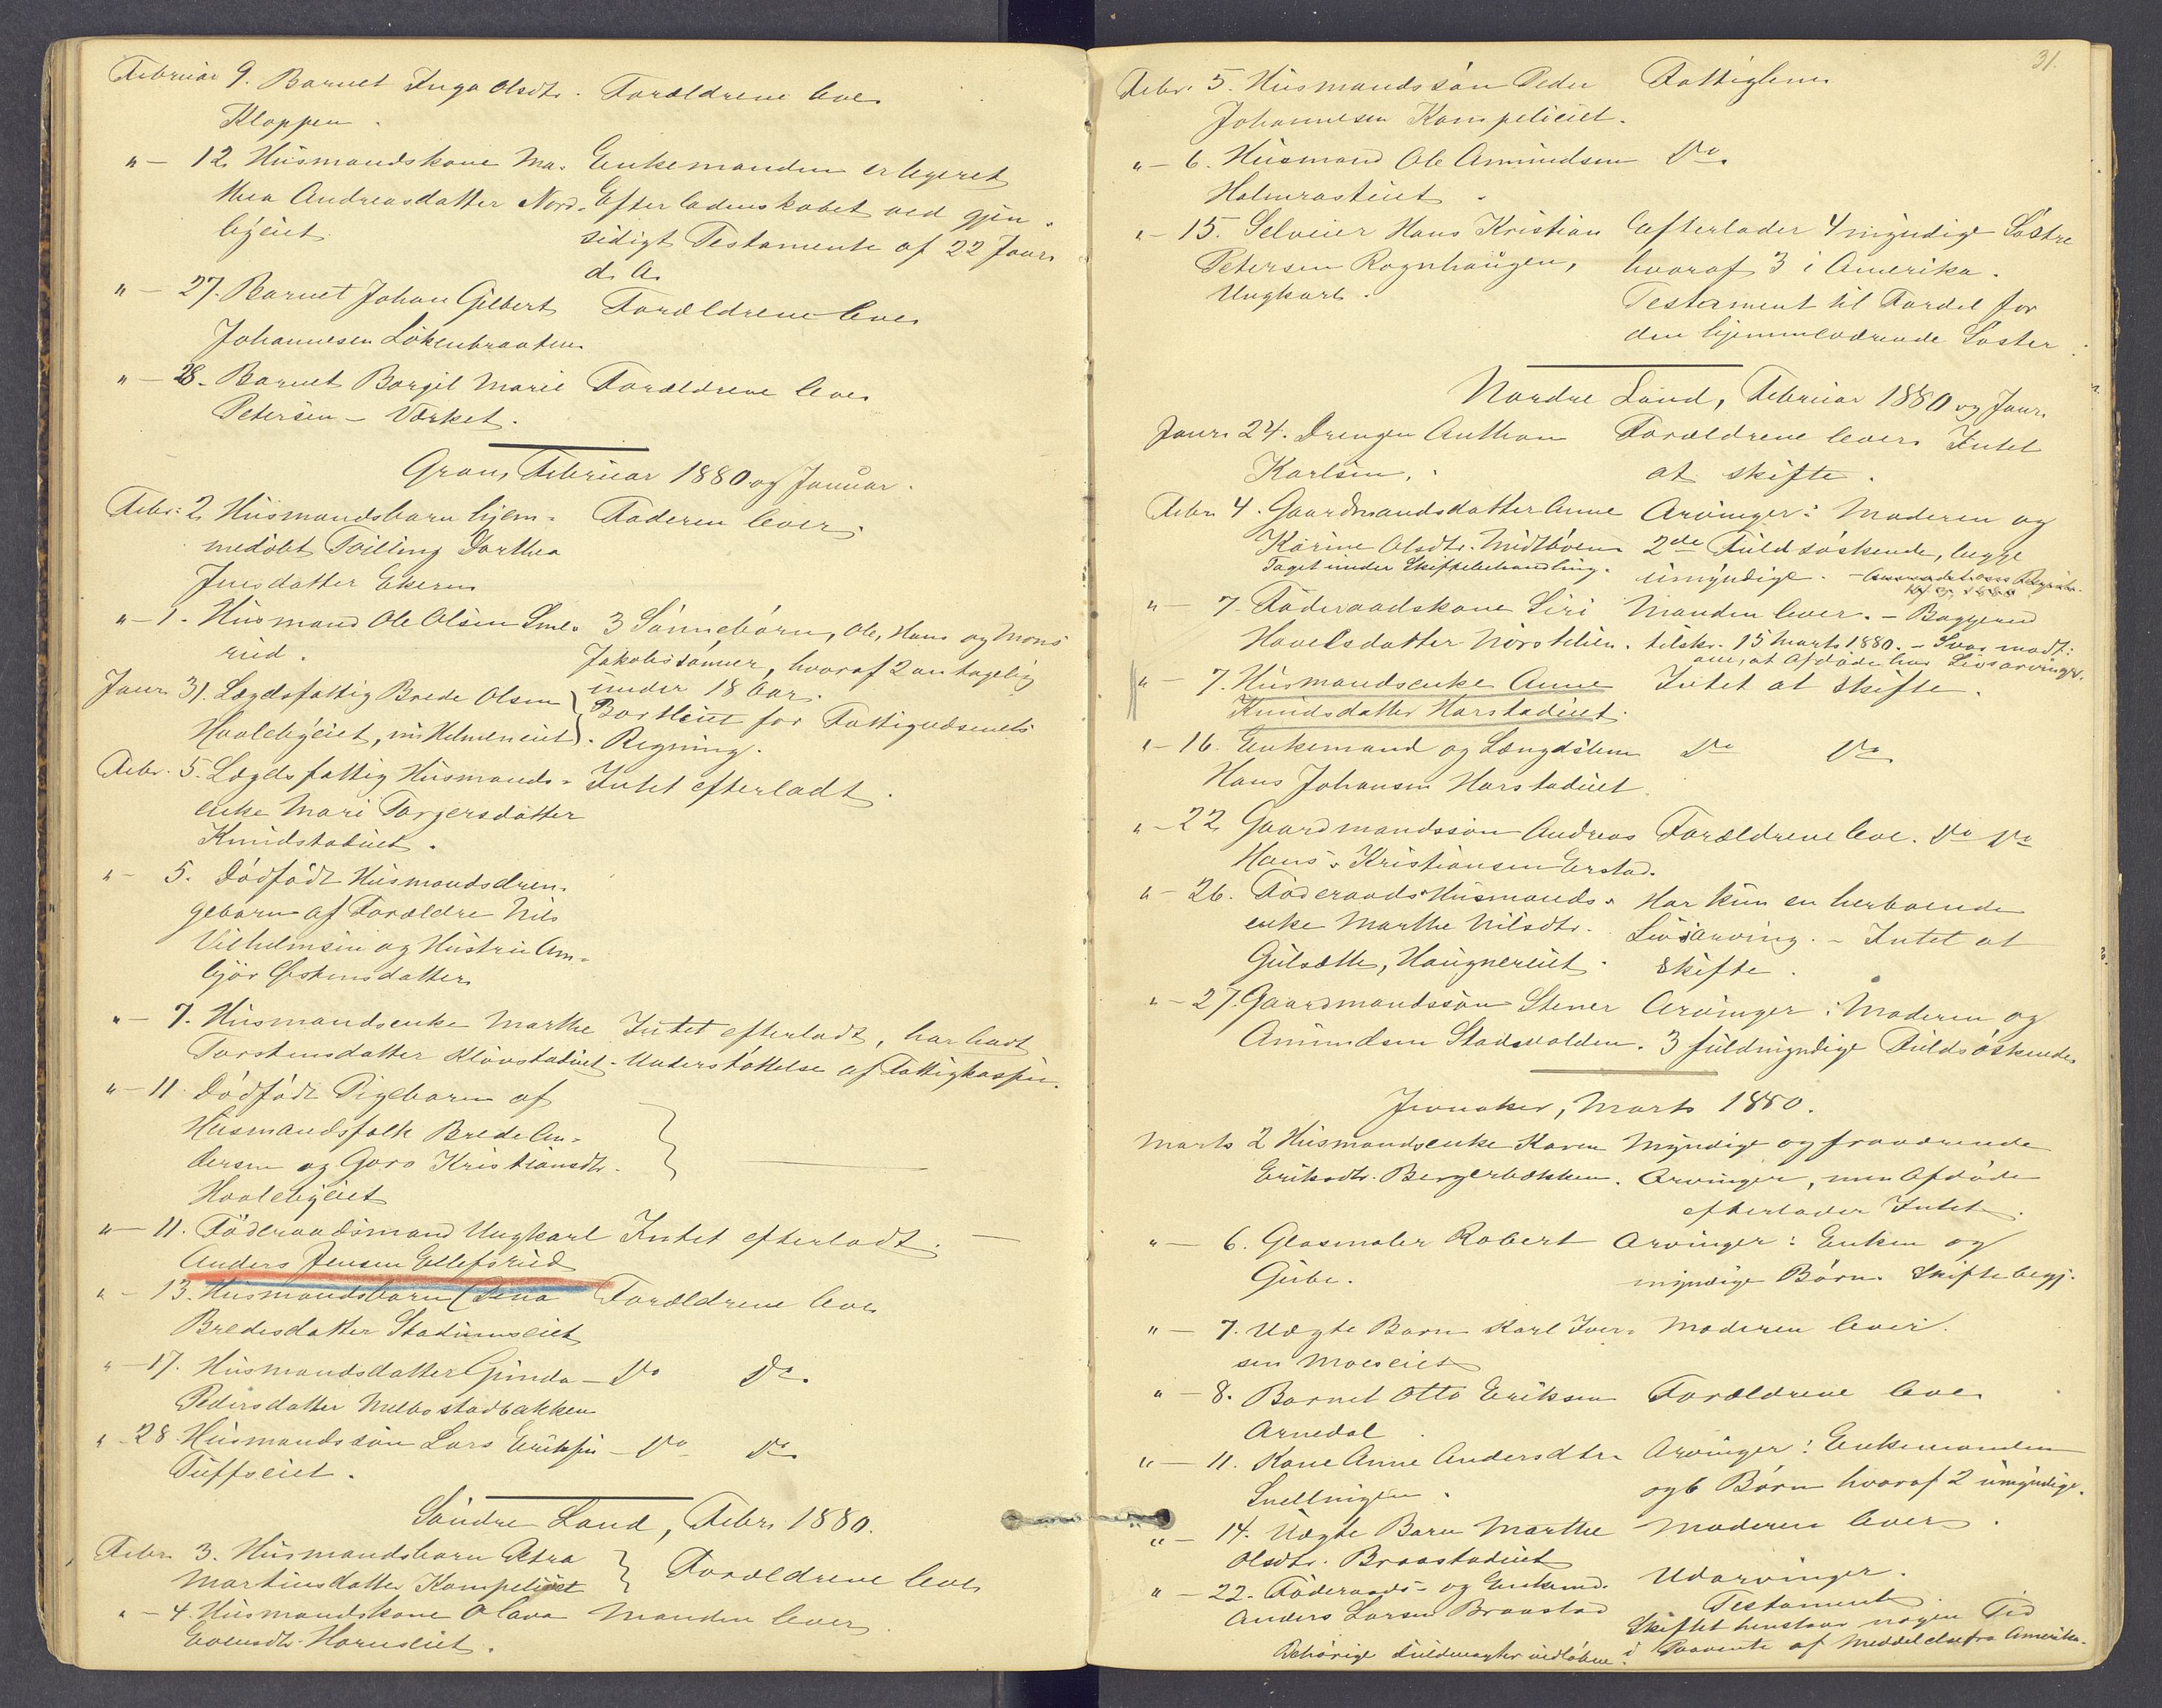 Februar 9. Barnet Inga Olsdtr. Forældrene leve
Kloppen.
"— 12. Husmandskone Ma- Enkemanden er legeret
thea Andreasdatter Nord- Efterladenskabet ved gjen-
bÿeiet. sidigt Testamente af 22 Janr.
d. A.
"— 27. Barnet Johan Gilbert Forældrene leve
Johannesen Lökenbraaten
"— 28. Barnet Borgil Marie Forældrene leve
Petersen — Værket.
Gran, Februar 1880 og Januar.
Febr. 2. Husmandsbarn hjem- Faderen lever.
medöbt Tvilling Dorthea
Jensdatter Ekern
"— 1. Husmand Ole Olsen Sme- 3 Sönnebörn, Ole, Hans og Mons
rud. Jakobssönner, hvoraf 2 antagelig
under 18 Aar.
Janr. 31. Lægdsfattig Brede Olsen Bortleiet for Fattigvæsenets
Hvalebÿeiet, Regning.
Febr. 5. Lægdsfattig Husmands- Intet efterladt.
enke Mari Torgersdatter
Knudstadeiet.
"— 5. Dödfödt Husmandsdren-
gebarn af Forældre Nils
Vilhelmsen og Hustru Am-
björ Östensdatter
"— 7. Husmandsenke Marthe Intet efterladt, har havt
Torstensdatter Klövstadeiet. Understöttelse af Fattigkassen.
"— 11. Dödfödt Pigebarn af
Husmandsfolk Brede An-
dersen og Goro Kristiansdtr.
Hvalebÿeiet
"— 11. Föderaadsmand Ungkarl Intet efterladt.
Anders Jensen Ellefsrud
"— 13. Husmandsbarn Dina Forældrene leve
Bredesdatter Stadumseiet
"— 17. Husmandsdatter Ginda — Do Do.
Pedersdatter Melbostadbakken
"— 28. Husmandssön Lars Eriksen — Do Do.
Tuffseiet.
Söndre Land, Febr. 1880.
Febr. 3. Husmandsbarn Petra Forældrene leve
Martinsdatter Kompelieiet
"— 4. Husmandskone Olava Manden lever.
Evensdtr. Hornseiet.
31.
Febr. 5. Husmandssön Peder Fattiglem
Johannesen Kompelieiet.
"— 6. Husmand Ole Amundsen Do.
Holmrasteiet.
"— 15. Selveier Hans Kristian Efterlader 4 myndige Söstre
Petersen Rognhaugen, hvoraf 3 i Amerika.
Ungkarl. Testament til Fordel for
den hjemmeværende Söster.
Nordre Land, Februar 1880 og Janr.
Janr. 24. Drengen Anthon Forældrene lever. Intet
Karlsen. at skifte.
Febr. 4. Gaardmandsdatter Anne Arvinger: Moderen og
Karine Olsdtr. Midtböen 2de Fuldsöskende, begge
Taget under Skiftebehandling. umyndige.
"— 7. Föderaadskone Siri Manden lever. — Boggerud
Havelsdatter Nörstelien. tilskr. 15 Marts 1880. — Svar modt:
at Afdöde har Livsarvinger.
"— 7. Husmandsenke Anne Intet at skifte.
Knudsdatter Horstadeiet.
"— 16. Enkemand og Længdslem Do Do
Hans Johansen Horstadeiet.
"— 22. Gaardmandssön Andreas Forældrene leve. Do Do
Hans Kristiansen Erstad.
"— 26. Föderaads Husmands- Har kun en herboende
enke Marthe Nilsdtr. Livsarving. — Intet at
Gulsætte, Haugnereiet. skifte.
"— 27. Gaardmandssön Stener Arvinger: Moderen og
Amundsen Stadsvolden. 3 fuldmyndige Fuldsöskende
Jevnaker, Marts 1880.
Marts 2. Husmandsenke Karen Myndige og fraværende
Eriksdtr. Bergerbækken. Arvinger, men Afdöde
efterlader Intet.
"— 6. Glasmaler Robert Arvinger: Enken og
Gube. myndige Börn. Skifte begj.
"— 7. Uægte Barn Karl Iver- Moderen lever.
sen Moeseiet
"— 8. Barnet Otto Eriksen Forældrene leve
Arnedal.
"— 11. Kone Anne Andersdtr. Arvinger: Enkemanden
Snellingen. og 6 Börn hvoraf 2 umyndige.
"— 14. Uægte Barn Marthe Moderen lever.
Olsdtr. Braastadeiet
"— 22. Föderaads- og Enkemd. Udarvinger.
Anders Larsen Braastad Testament.
Skiftet henstaar nogen Tid
Behörige Fuldmagter i Paavente af Meddelelse fra Amerika.